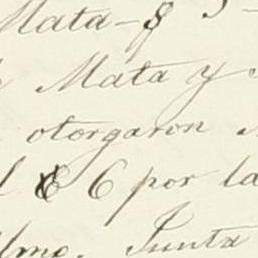 Mata - $ 5 -
Mata y
otorgaron
$ 6 por la
Ylmo. Junta